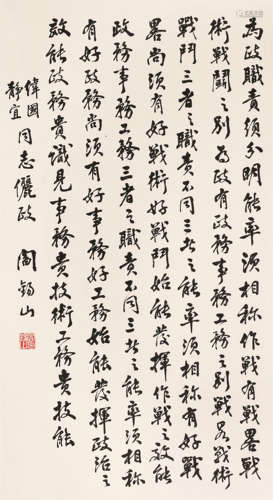 為政職責須分明能率須相稱作戰有戰畧戰
術戰鬭之別為政有政務事務工務之別戰畧戰術
戰鬥三者之職責不同三者之能率須相稱有好戰
畧尚須有好戰術好戰鬥始能發揮作戰之效能
政務事務工務三者之職責不同三者之能率須相稱
有好政務尚須有好事務好工務始能發揮政治之
效能政務貴識見事務貴技術工務貴技能
偉國
靜宜
同志儷政
閻錫山